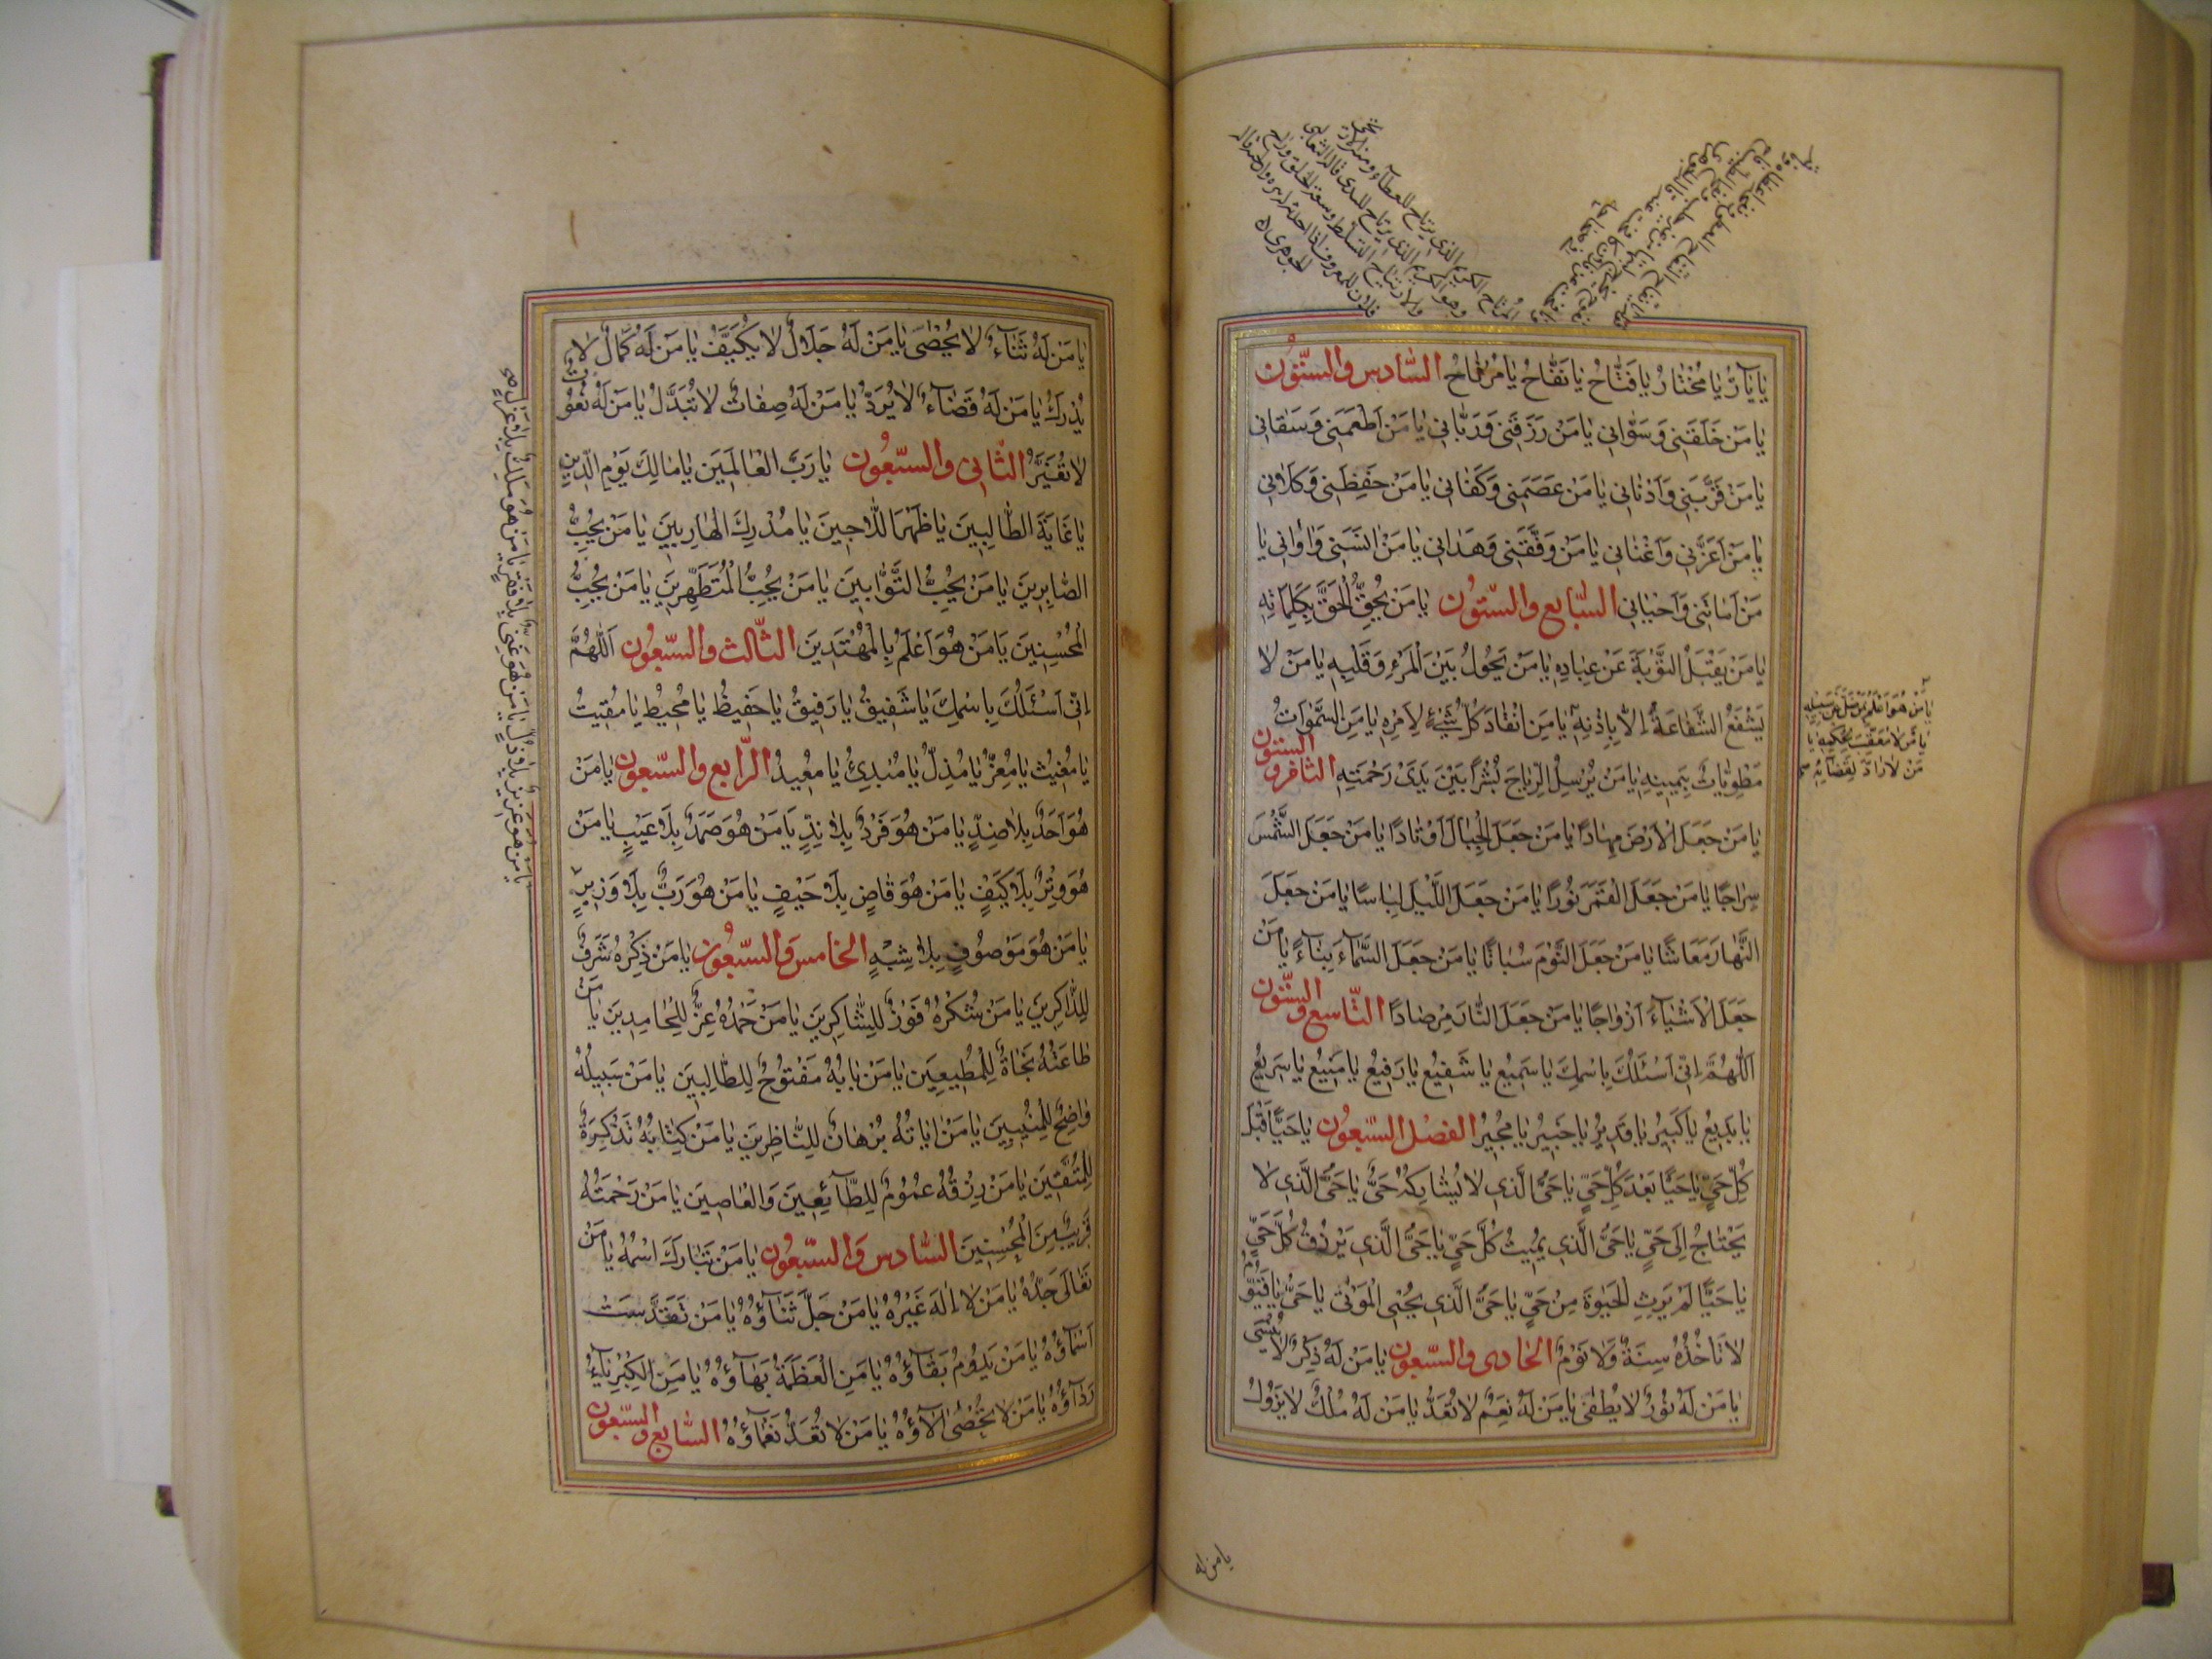 يا بآرُّ يا مُخْتارُ يا فَتّاحُ يا نَفّاحُ يا مُرْتاحُ السّادس والستّون
يا مَنْ خَلَقَنى وَسَوّانى يا مَنْ رَزَقَنى وَرَبّانى يا مَنْ اَطْعَمَنى وَسَقانى
يا مَنْ قَرَّبَنى وَاَدْنانى يا مَنْ عَصَمَنى وَكَفانى يا مَنْ حَفِظَنى وَكَلاَنى
يا مَنْ اَعَزَّنى وَاَغْنانى يا مَنْ وَفَّقَنى وَهَدانى يا مَنْ انَسَنى وَاوانى يا
مَنْ اَماتَنى وَاَحْيانى السّابع والستّون يا مَنْ يُحِقُّ الْحَقَّ بِكَلِماتِه
يا مَنْ يَقْبَلُ التَّوْبَةَ عَنْ عِبادِهِ يا مَنْ يَحُولُ بَيْنَ الْمَرْءِ وَقَلْبِهِ يا مَنْ لا
يَنْفَعُ الشَّفاعَةُ اِلاّ بِاِذْنِهِ يا مَنِ انْقادَ كُلُّ شَىْءٍ لِاَمْرِهِ يا مَنِ السَّمٰواتُ
مَطْوِيّاتٌ بِيَمينِهِ يا مَنْ يُرْسِلُ الرِّياحَ بُشْراً بَيْنَ يَدَىْ رَحْمَتِهِ الثامن و الستون
يا مَنْ جَعَلَ الْاَرْضَ مِهاداً يا مَنْ جَعَلَ الْجِبالَ اَوْتاداً يا مَنْ جَعَلَ الشَّمْسَ
سِراجًا يا مَنْ جَعَلَ الْقَمَرَ نُورًا يا مَنْ جَعَلَ اللَّيْلَ لِباسًا يا مَنْ جَعَلَ
النَّهارَ مَعاشًا يا مَنْ جَعَلَ النَّوْمَ سُباتًا يا مَنْ جَعَلَ السَّمآءَ بِنآءً يا مَنْ
جَعَلَ الْاَشْيآءَ اَزْواجًا يا مَنْ جَعَلَ النّارَ مِرْصادًا التّاسع و الستّون
اَللّهُمَّ اِنّى اَسْئَلُكَ بِاسْمِكَ يا سَميعُ يا شَفيعُ يا رَفيعُ يا مَنيعُ يا سَريعُ
يا بَديعُ يا كَبيرُ يا قَديرُ يا خَبيرُ يا مُجيرُ الفصل السّبعون يا حَيًّا قَبْلَ
كُلِّ حَىٍّ يا حَيًّا بَعْدَ كُلِّ حَىٍّ يا حَىُّ الَّذى لا يُشارِكُهُ حَىٌّ يا حَىُّ الَّذى لا
يَحْتاجُ اِلى حَىٍّ يا حَىُّ الَّذى يُميتُ كُلَّ حَىٍّ يا حَىُّ الَّذى يَرْزُقُ كُلَّ حَىٍّ
يا حَيًّا لَمْ يَرِثِ الْحَيٰوةَ مِنْ حَىٍّ يا حَىُّ الَّذى يُحْيِى الْمَوْتى يا حَىُّ يا قَيُّومُ
لا تَأْخُذُهُ سِنَةٌ وَلا نَوْمٌ الحادى والسّبعون يا مَنْ لَهُ ذِكْرٌ لا يُنْسى
يا مَنْ لَهُ نُورٌ لا يُطْفى يا مَنْ لَهُ نِعَمٌ لا تُعَدُّ يا مَنْ لَهُ مُلْكٌ لا يَزُولُ
يا مَنْ هُوَ اَعْلَمُ بِمَنْ ضَلَّ عَنْ سَبيلِهِ
يا مَنْ لا مُعَقِّبَ لِحُكْمِهِ يا
مَنْ لا رادَّ لِقَضآئِهِ
يا من له
يا مَنْ لَهُ ثَنآءٌ لا يُحْصى يا مَنْ لَهُ جَلالٌ لا يُكَيَّفُ يا مَنْ لَهُ كَمالٌ لا
يُدْرَكُ يا مَنْ لَهُ قَضآءٌ لا يُرَدُّ يا مَنْ لَهُ صِفاتٌ لا تُبَدَّلُ يا مَنْ لَهُ نُعُوتٌ
لا تُغَيَّرُ الثّانى والسبّعون يا رَبَّ الْعالَمينَ يا مالِكَ يَوْمِ الدّينِ
يا غايَةَ الطّالِبينَ يا ظَهْرَ اللّاجينَ يا مُدْرِكَ الْهارِبينَ يا مَنْ يُحِبُّ
الصّابِرينَ يا مَنْ يُحِبُّ التَّوّابينَ يا مَنْ يُحِبُّ الْمُتَطَهِّرينَ يا مَنْ يُحِبُّ
الْمُحْسِنينَ يا مَنْ هُوَ اَعْلَمُ بِالْمُهْتَدينَ الثّالث والسّبعون اَللّهُمَّ
اِنّى اَسْئَلُكَ بِاسْمِكَ يا شَفيقُ يا رَفيقُ يا حَفيظُ يا مُحيطُ يا مُقيتُ
يا مُغيثُ يا مُعِزُّ يا مُذِلُّ يا مُبْدِئُ يا مُعيدُ الرّابع والسّبعون يا مَنْ
هُوَ اَحَدٌ بِلا ضِدٍّ يا مَنْ هُوَ فَرْدٌ بِلا نِدٍّ يا مَنْ هُوَ صَمَدٌ بِلا عَيْبٍ يا مَنْ
هُوَ وِتْرٌ بِلا كَيْفٍ يا مَنْ هُوَ قاضٍ بِلا حَيْفٍ يا مَنْ هُوَ رَبٌّ بِلا وَزيرٍ
يا مَنْ هُوَ عَزيزٌ بِلا ذُلٍّ يا مَنْ هُوَ غَنِىٌّ بِلا فَقْرٍ يا مَنْ هُوَ مَلِكٌ بِلا عَزْلٍ
يا مَنْ هُوَ مَوْصُوفٌ بِلا شِبْهٍ الخامس والسّبعون يا مَنْ ذِكْرُهُ شَرَفٌ
لِلذّاكِرينَ يا مَنْ شُكْرُهُ فَوْزٌ لِلشّاكِرينَ يا مَنْ حَمْدُهُ عِزٌّ لِلْحامِدينَ يا مَنْ
طاعَتُهُ نَجاةٌ لِلْمُطيعينَ يا مَنْ بابُهُ مَفْتُوحٌ لِلطّالِبينَ يا مَنْ سَبيلُهُ
واضِحٌ لِلْمُنيبينَ يا مَنْ اياتُهُ بُرْهانٌ لِلنّاظِرينَ يا مَنْ كِتابُهُ تَذْكِرَةٌ
لِلْمُتَّقينَ يا مَنْ رِزْقُهُ عُمُومٌ لِلطّآئِعينَ وَالْعاصينَ يا مَنْ رَحْمَتُهُ
قَريبٌ مِنَ الْمُحْسِنينَ السّادس والسّبعون يا مَنْ تَبارَكَ اسْمُهُ يا مَنْ
تَعالى جَدُّهُ يا مَنْ لا اِلهَ غَيْرُهُ يا مَنْ جَلَّ ثَنآؤُهُ يا مَنْ تَقَدَّسَتْ
اَسْمآؤُهُ يا مَنْ يَدُومُ بَقآؤُهُ يا مَنِ الْعَظَمَةُ بَهآؤُهُ يا مَنِ الْكِبْرِيآءُ
رِدآؤُهُ يا مَنْ لا تُحْصى الآؤُهُ يا مَنْ لا تُعَدُّ نَعْمآؤُهُ السّابع و السّبعون